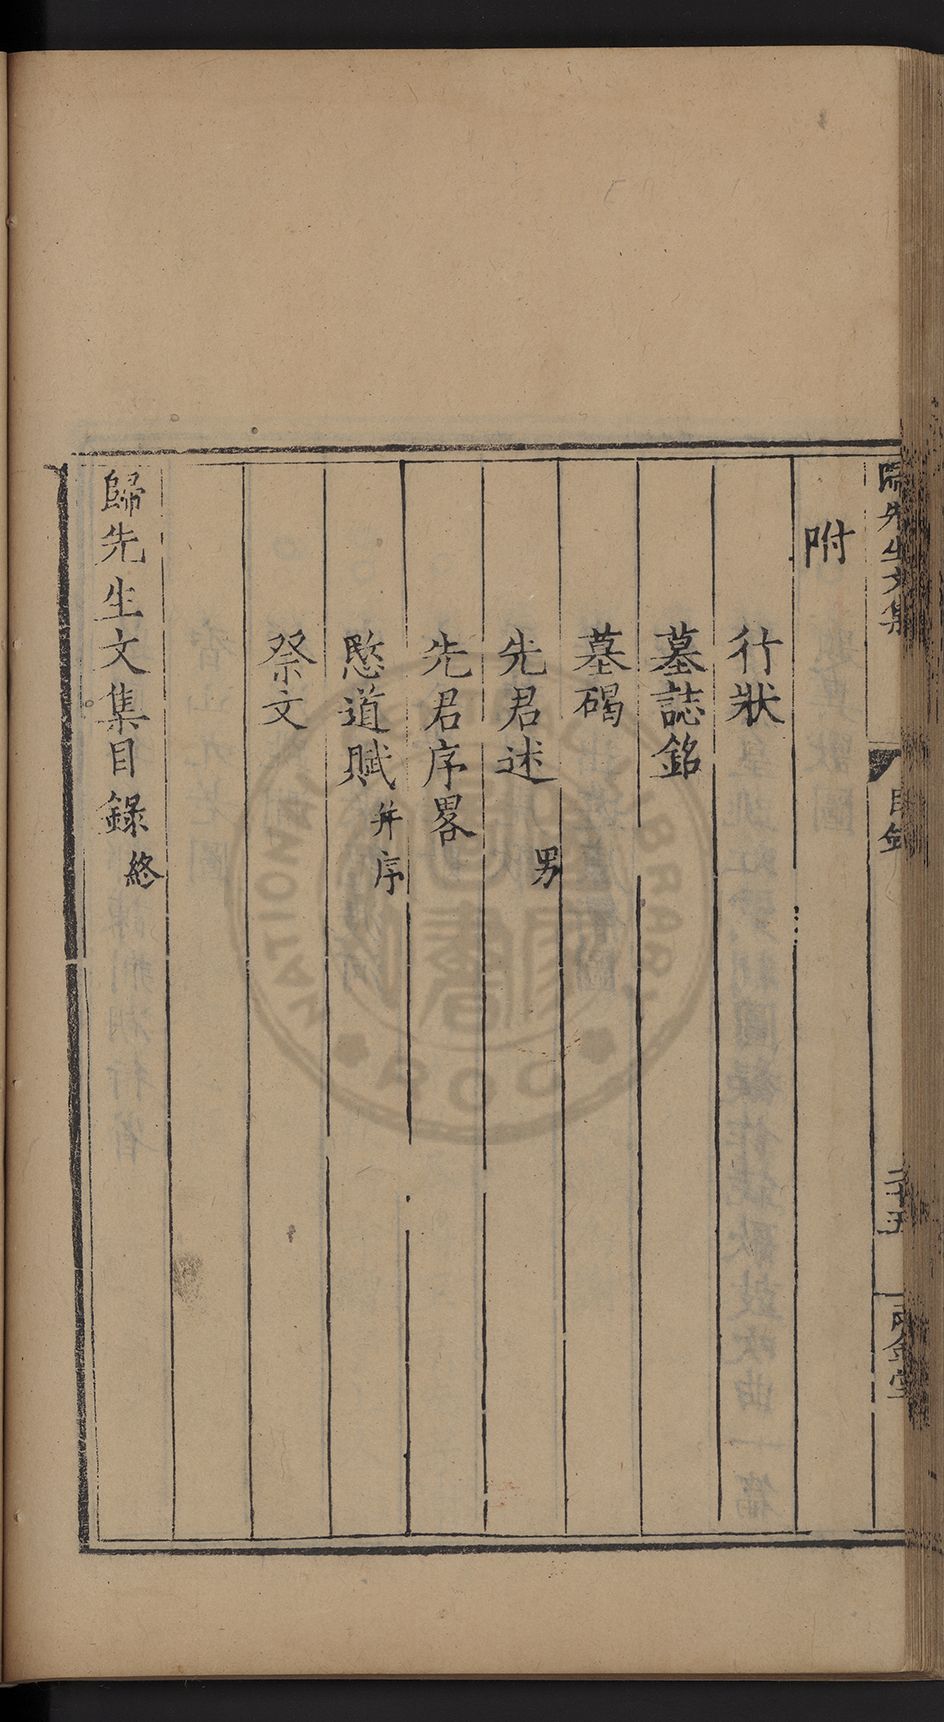 歸先生文集
目錄
二十五
兩金堂
附
行狀
墓誌銘
墓碣
先君述 男
先君序畧
愍道賦 并序
祭文
歸先生文集目錄 終